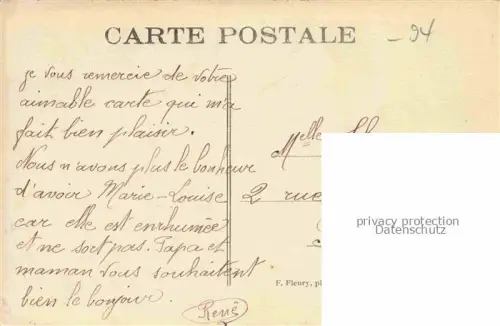 CARTE POSTALE
- 94
je vous remercie de votre
aimable carte qui m'a
fait bien plaisir.
Nous n'avons plus le bonheur
d'avoir Marie-Louise
car elle est enrhumée
et ne sort pas. Papa et
maman vous souhaitent
bien le bonjour.
René
Melle
2 rue
privacy protection
Datenschutz
F. Fleury, p